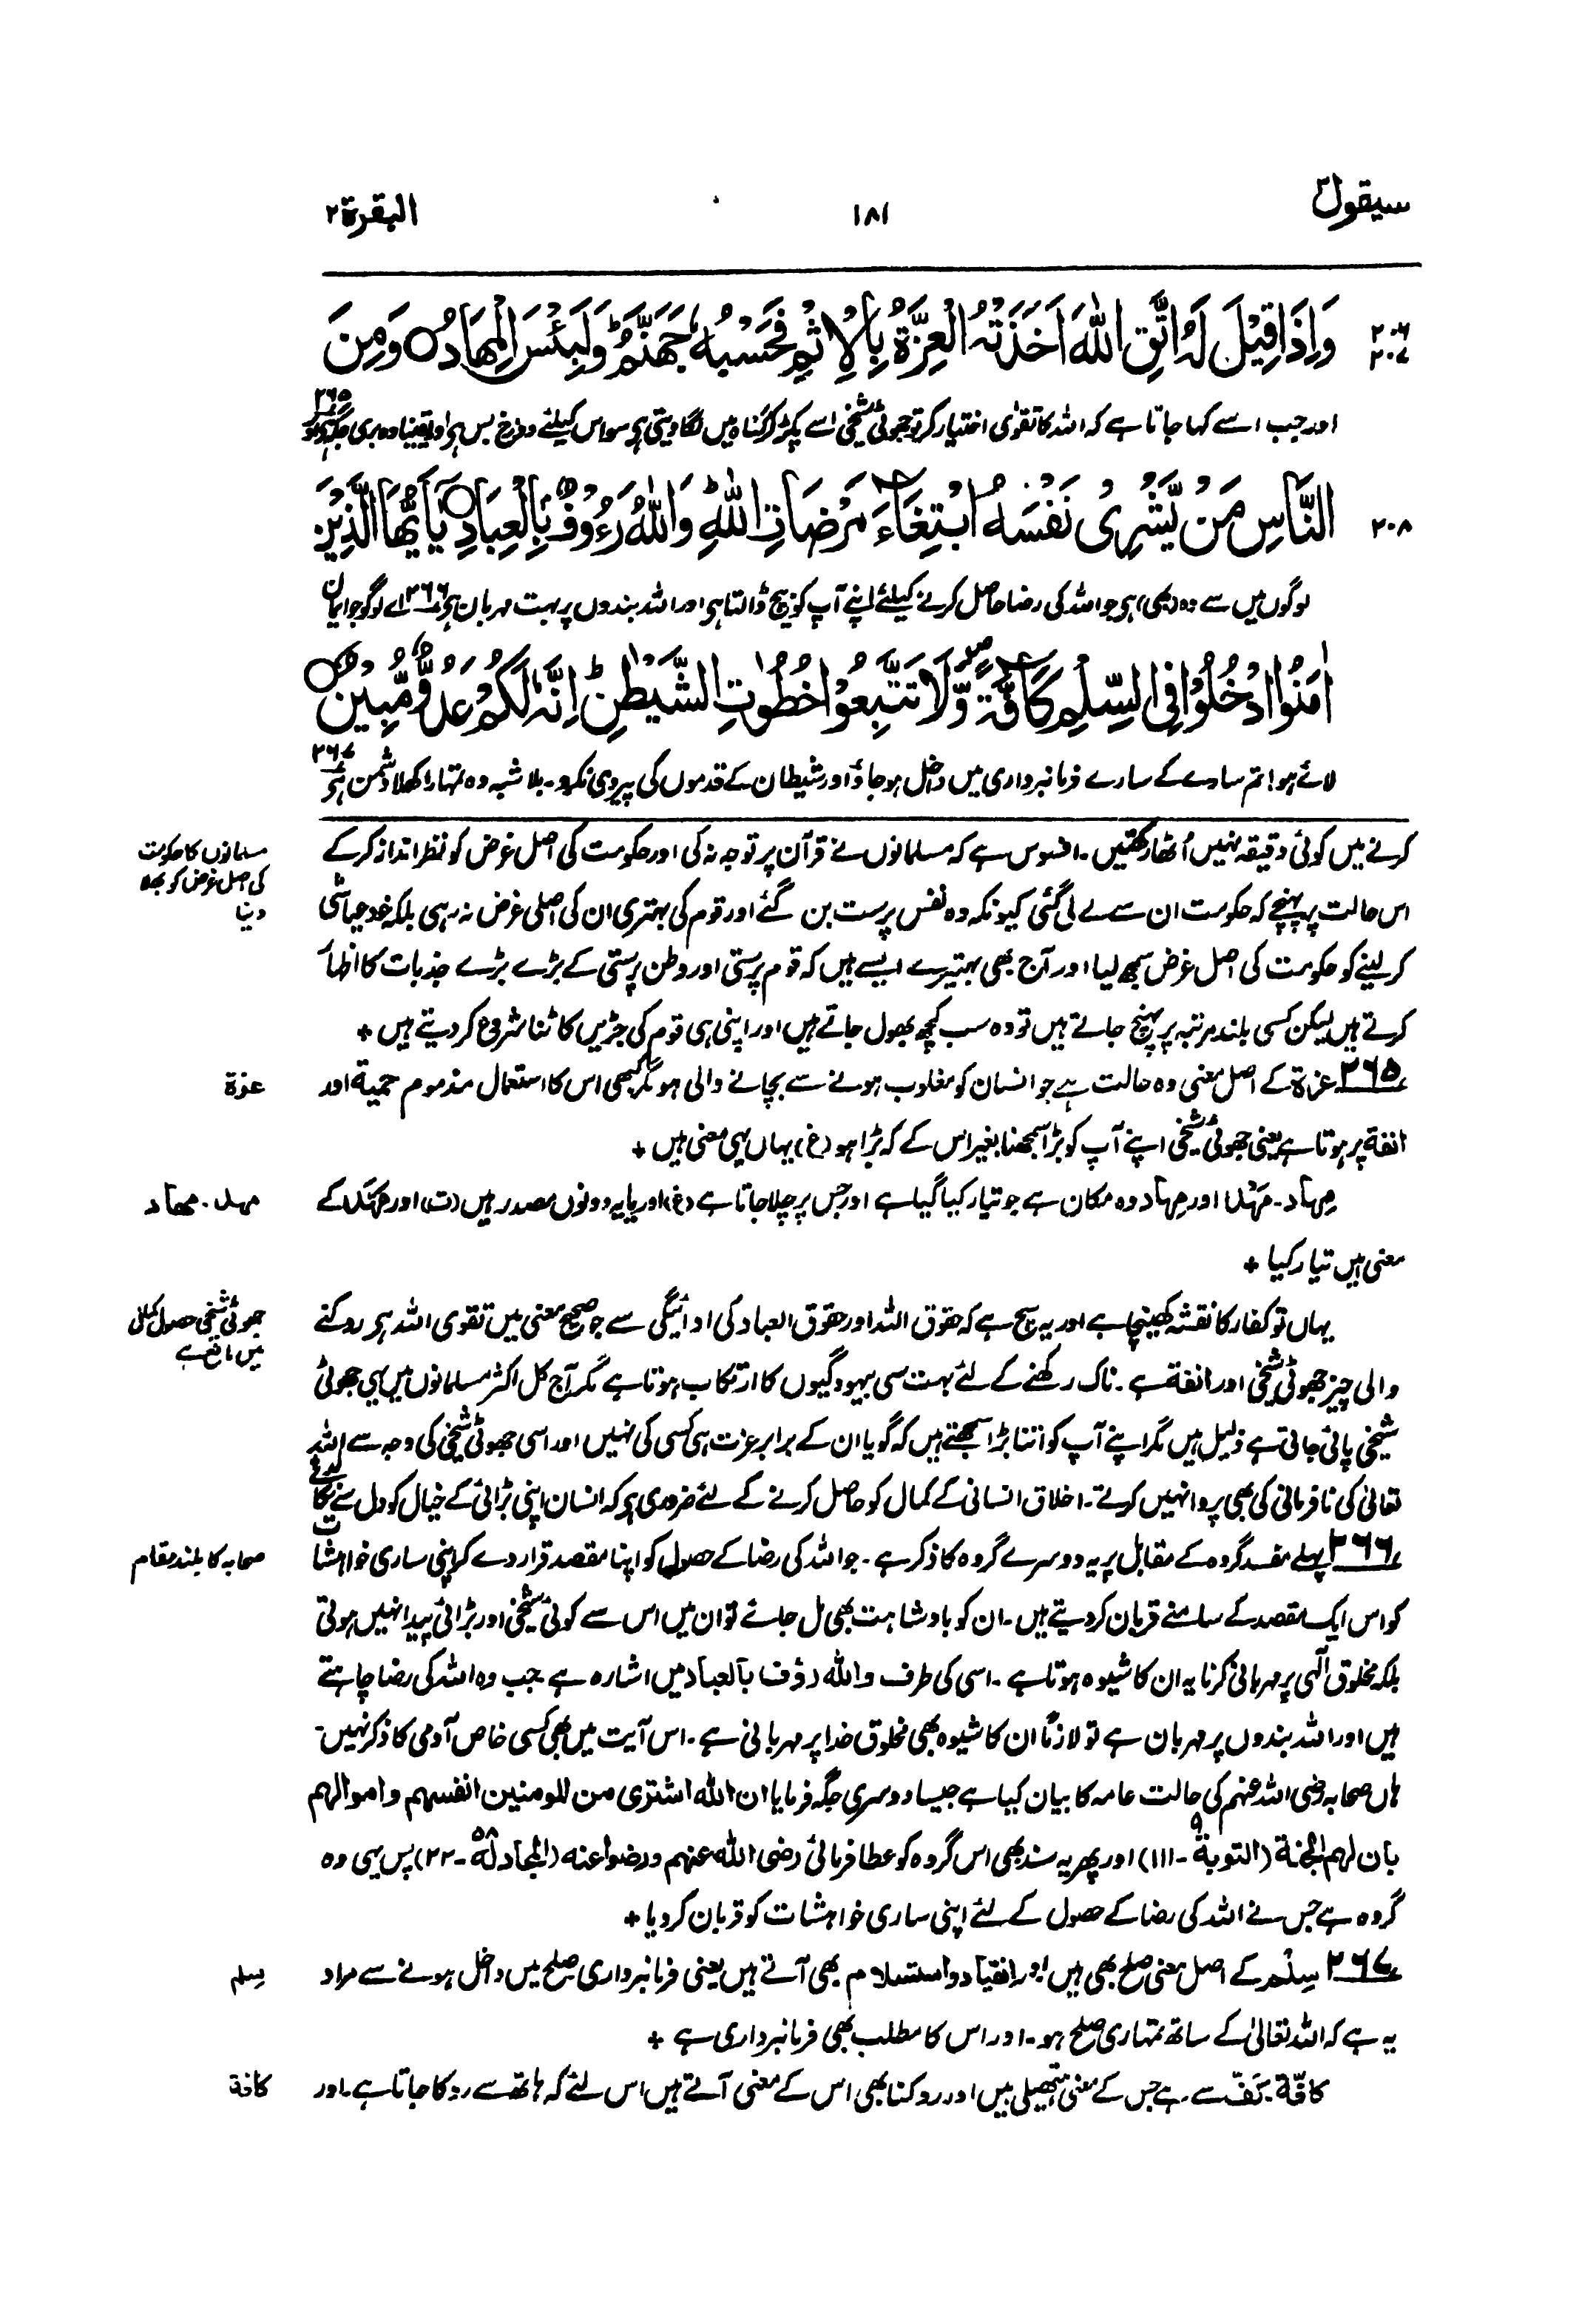 سیقول ۲
۱۸۱
البقرة ۲
۲۰۶
۲۰۷
وَاِذَا قِيْلَ لَهُ اتَّقِ اللّٰهَ اَخَذَتْهُ الْعِزَّةُ بِالْاِثْمِ فَحَسْبُهٗ جَهَنَّمُ ؕ وَلَبِئْسَ الْمِهَادُ ۝ وَمِنَ
اور جب اسے کہا جاتا ہے کہ اللہ کا تقوٰی اختیار کر تو جھوٹی شیخی اُسے پکڑ کر گناہ میں لگا دیتی ہی سو اس کیلئے دوزخ بس ہی اور یقیناً وہ بری جگہ ہی ۲۶۵ اور
۲۰۸
النَّاسِ مَنْ يَّشْرِىْ نَفْسَهُ ابْتِغَآءَ مَرْضَاتِ اللّٰهِ ؕ وَاللّٰهُ رَءُوْفٌۢ بِالْعِبَادِ ۝ يٰٓاَيُّهَا الَّذِيْنَ
لوگوں میں سے وہ (بھی) ہی جو اللہ کی رضا حاصل کرنے کیلئے اپنے آپ کو بیچ ڈالتا ہی اور اللہ بندوں پر بہت مہربان ہی ۲۶۶ اے لوگو جو ایمان
اٰمَنُوا ادْخُلُوْا فِى السِّلْمِ كَآفَّةً ۪ وَّلَا تَتَّبِعُوْا خُطُوٰتِ الشَّيْطٰنِ ؕ اِنَّهٗ لَكُمْ عَدُوٌّ مُّبِيْنٌ ۝
لائے ہو! تم سارے کے سارے فرمانبرداری میں داخل ہو جاؤ اور شیطان کے قدموں کی پیروی نکرو۔ بلا شبہ وہ تمہارا کھلا دشمن ہی ۲۶۷
کرنے میں کوئی دقیقہ نہیں اُٹھا رکھتیں۔ افسوس ہے کہ مسلمانوں نے قرآن پر توجہ نہ کی اور حکومت کی اصل غرض کو نظر انداز کر کے
مسلمانوں کا حکومت
کی اصل غرض کو بھلا
دینا
اس حالت پر پہنچے کہ حکومت ان سے لے لی گئی کیونکہ وہ نفس پرست بن گئے اور قوم کی بہتری ان کی اصلی غرض نہ رہی بلکہ خود عیاشی
کر لینے کو حکومت کی اصل غرض سمجھ لیا اور آج بھی بہتیرے ایسے ہیں کہ قوم پرستی اور وطن پرستی کے بڑے بڑے جذبات کا اظہار
کرتے ہیں لیکن کسی بلند مرتبہ پر پہنچ جاتے ہیں تو وہ سب کچھ بھول جاتے ہیں اور اپنی ہی قوم کی جڑیں کاٹنا شروع کر دیتے ہیں +
۲۶۵ عزۃ کے اصل معنی وہ حالت ہے جو انسان کو مغلوب ہونے سے بچانے والی ہو مگر کبھی اس کا استعمال مذموم حمیۃ اور
عزة
انفۃ پر ہوتا ہے یعنی جھوٹی شیخی اپنے آپ کو بڑا سمجھنا بغیر اس کے کہ بڑا ہو (غ) یہاں یہی معنی ہیں +
مِہاد۔ مَہْد اور مِہاد وہ مکان ہے جو تیار کیا گیا ہے اور جس پر چلا جاتا ہے (غ) اور یا یہ دونوں مصدر ہیں (ت) اور مَہَّدَ کے
مہد۔ مہاد
معنی ہیں تیار کیا +
یہاں تو کفار کا نقشہ کھینچا ہے اور یہ سچ ہے کہ حقوق اللہ اور حقوق العباد کی ادائیگی سے جو صحیح معنی میں تقوی اللہ ہی روکنے
جھوٹی شیخی حصول کمال
میں مانع ہے
والی چیز جھوٹی شیخی اور انفۃ ہے۔ ناک رکھنے کے لئے بہت سی بیہودگیوں کا ارتکاب ہوتا ہے مگر آج کل اکثر مسلمانوں میں یہی جھوٹی
شیخی پائی جاتی ہے ذلیل ہیں مگر اپنے آپ کو اتنا بڑا سمجھتے ہیں کہ گویا ان کے برابر عزت ہی کسی کی نہیں اور اسی جھوٹی شیخی کی وجہ سے اللہ
تعالی کی نافرمانی کی بھی پروا نہیں کرتے۔ اخلاق انسانی کے کمال کو حاصل کرنے کے لئے ضروری ہی کہ انسان اپنی بڑائی کے خیال کو دل سے نکالدے
۲۶۶ پہلے مفسد گروہ کے مقابل پر یہ دوسرے گروہ کا ذکر ہے۔ جو اللہ کی رضا کے حصول کو اپنا مقصد قرار دے کر اپنی ساری خواہشات
صحابہ کا بلند مقام
کو اس ایک مقصد کے سامنے قربان کر دیتے ہیں۔ ان کو بادشاہت بھی مل جائے تو ان میں اس سے کوئی شیخی اور بڑائی پیدا نہیں ہوتی
بلکہ مخلوق الٰہی پر مہربانی کرنا یہ ان کا شیوہ ہوتا ہے۔ اسی کی طرف واللہ رؤف بالعباد میں اشارہ ہے جب وہ اللہ کی رضا چاہتے
ہیں اور اللہ بندوں پر مہربان ہے تو لازماً ان کا شیوہ بھی مخلوق خدا پر مہربانی ہے۔ اس آیت میں بھی کسی خاص آدمی کا ذکر نہیں۔
ہاں صحابہ رضی اللہ عنہم کی حالت عامہ کا بیان کیا ہے جیسا دوسری جگہ فرمایا ان اللہ اشتری من المومنین انفسہم و اموالہم
بان لہم الجنۃ (التوبۃ ۹۔۱۱۱) اور پھر یہ سند بھی اس گروہ کو عطا فرمائی رضی اللہ عنہم و رضوا عنہ (المجادلۃ ۵۸۔۲۲) پس یہی وہ
گروہ ہے جس نے اللہ کی رضا کے حصول کے لئے اپنی ساری خواہشات کو قربان کر دیا +
۲۶۷ سِلْم کے اصل معنی صلح بھی ہیں اور انقیاد و استسلام بھی آتے ہیں یعنی فرمانبرداری صلح میں داخل ہونے سے مراد
سلم
یہ ہے کہ اللہ تعالیٰ کے ساتھ تمہاری صلح ہو۔ اور اس کا مطلب بھی فرمانبرداری ہے +
کافّۃ۔ کَفّ سے ہے جس کے معنی ہتھیلی ہیں اور روکنا بھی اس کے معنی آتے ہیں اس لئے کہ ہاتھ سے روکا جاتا ہے۔ اور
کافة